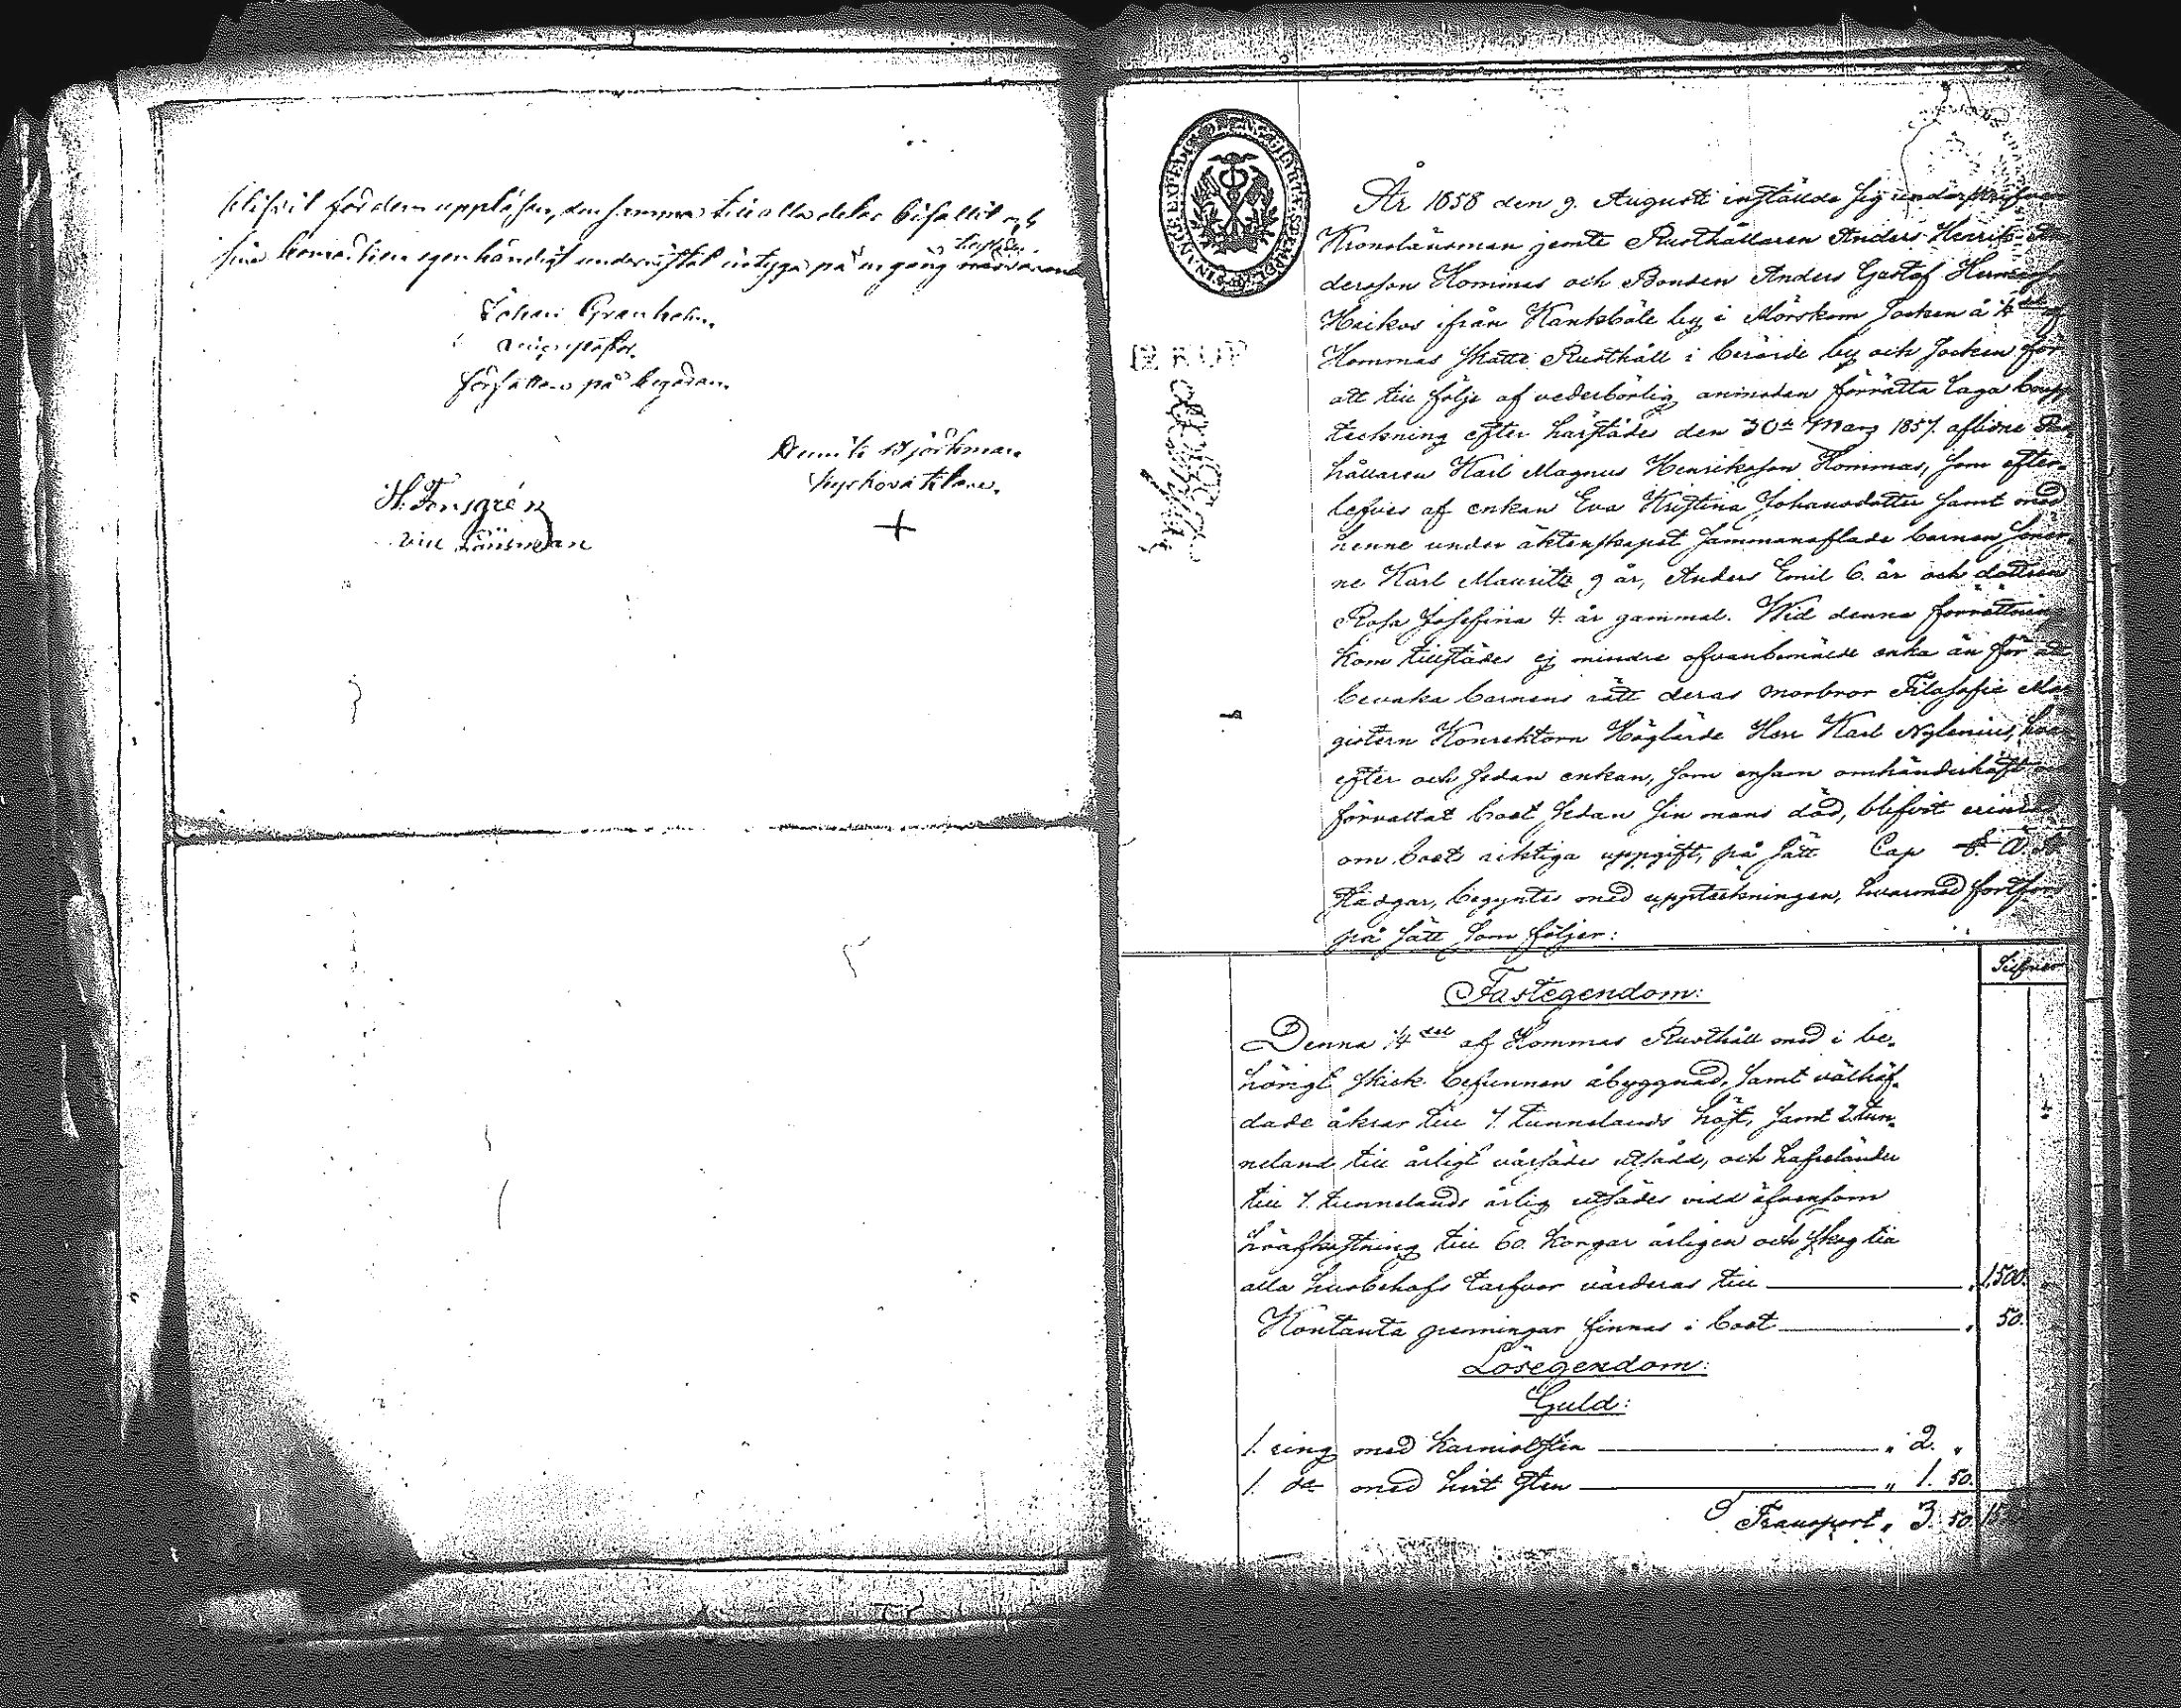 blifvit för dem uppläsen, den samma till alla delar bifallit och
sina bomärken egenhändigt underritat intyga på en gång närvarande
Johan Granholm
på begäran.
Kyrkovärdare.
+
H. Forsgrén
vice Länsman
År 1858 den 9. Augusti instälde sig underskrifven
Kronolänsman jemte Rusthållaren Anders Henrik
dersson Hommas och Bonden Anders Gustaf
Heikos ifrån Kankböle by i Mörskom socken å ¼del af
Hommas skatte Rusthåll i berörde by och socken för
att till följe af vederbörlig anmodan förrätta laga boupp
teckning efter härstädes den 30de Mars 1857. aflidne Rust
hållaren Karl Magnus Henriksson Hommas, som efter-
lefves af enkan Eva Kristina Johansdotter samt med
henne under äktenskapet sammanaflade barnen söner-
ne Karl Mauritz 9 år, Anders Emil 6. år och dottren
Rosa Josefina 4. år gammal. Wid denna förrättning
kom tillstädes ej mindre ofvanbemälde enka än för att
bevaka barnens rätt deras morbror Filosofie Ma
gistern Konrektorn Höglärde Herr Karl Nylenius, hvar
efter och sedan enkan, som ensam omhänderhaft och
förvaltat boet sedan sin mans död, blifvit erindrad
om boets riktiga uppgift, på sätt Cap Ä. B.
stadgar, begyntes med uppteckningen, hvarmed fortfors
på sätt som följer:
Silfver
Fastegendom:
Denna ¼del af Hommas Rusthåll med i be-
hörigt skick befunnen åbyggnad, samt välhäf-
dade åkrar till 7. tunnelands höst, samt 2. tun-
neland till årligt vårsädes utsäde, och hafreländer
till 7. tunnelands årlig utsädes vidd äfvensom
höafkastning till 60. korgar årligen och skog till
alla husbehofs tarfvor värderas till 1,500.
Kontanta penningar finnas i boet 50.
Lösegendom:
Guld:
1. ring med karniolsten " 2. "
1. do med hvit sten " 1. 50.
Transport " 3. 50.